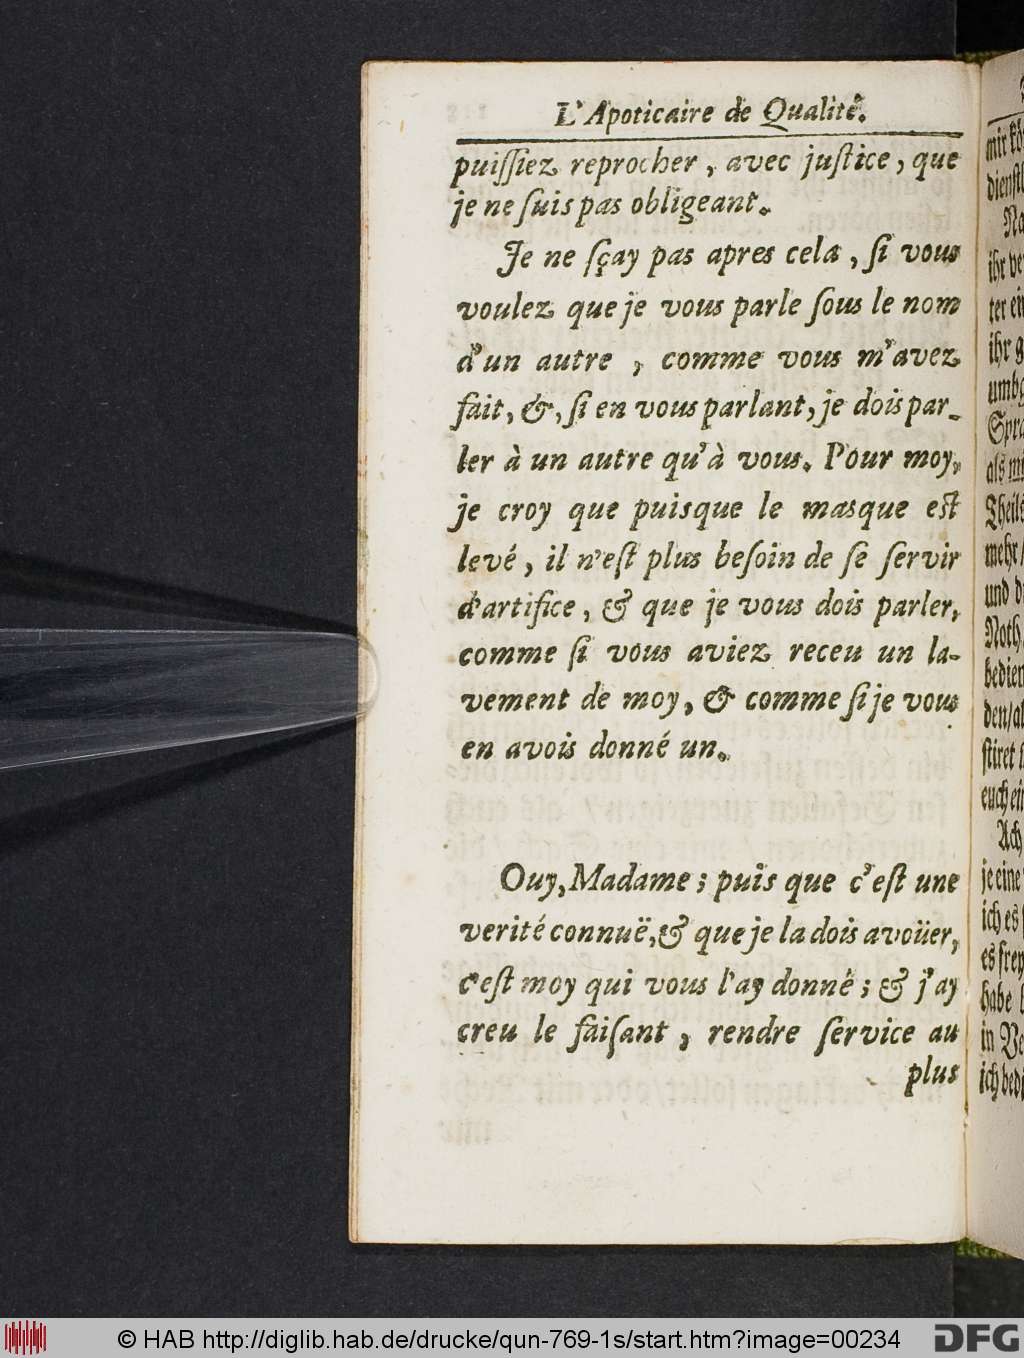 L'Apoticaire de Qualité.
puiſſiez reprocher, avec juſtice, que
je ne ſuis pas obligeant.
Je ne ſçay pas apres cela, ſi vous
voulez que je vous parle ſous le nom
d'un autre, comme vous m'avez
fait, &, ſi en vous parlant, je dois par-
ler à un autre qu'à vous. Pour moy,
je croy que puisque le masque eſt
levé, il n'eſt plus beſoin de ſe ſervir
d'artifice, & que je vous dois parler,
comme ſi vous aviez receu un la-
vement de moy, & comme ſi je vous
en avois donné un.
Ouy, Madame; puis que c'eſt une
verité connuë, & que je la dois avoüer,
c'eſt moy qui vous l'ay donné; & j'ay
creu le faiſant, rendre ſervice au
plus
mir
Na
ihr
ihr
als
mehr/
und
je eine
ich es
habe
in
© HAB http://diglib.hab.de/drucke/qun-769-1s/start.htm?image=00234
DFG